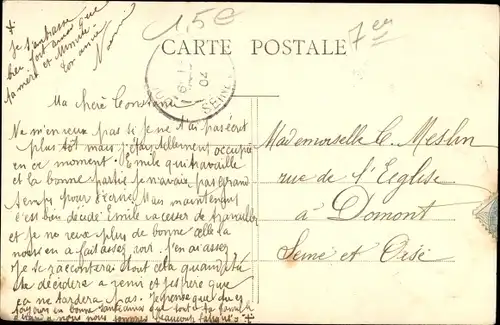 15€
7 em
CARTE POSTALE
04
SEINE
Ma chère Constance
Ne m'en veux pas si je ne t'ai pas écrit
plus tôt mais j'étais tellement occupée
en ce moment Emile qui travaille
et la bonne partie je n'avais pas grand
temps pour t'écrire Mais maintenant
c'est bien décidé Emile va cesser de travailler
et je ne veux plus de bonne celle là
nous en a fait assez voir. j'en ai assez
Je te raconterai tout cela quand tu
te décidera a venir et j'espère que
ça ne tardera pas. Je pense que tu es
toujours en bonne santé ainsi que tout ta famille
nous nous sommes beaucoup fatigués
Je t'embrasse
bien fort ainsi que
ta mère et Mimile
Ton amie
Mademoiselle C. Meslin
rue de l'Eglise
à Domont
Seine et Oise